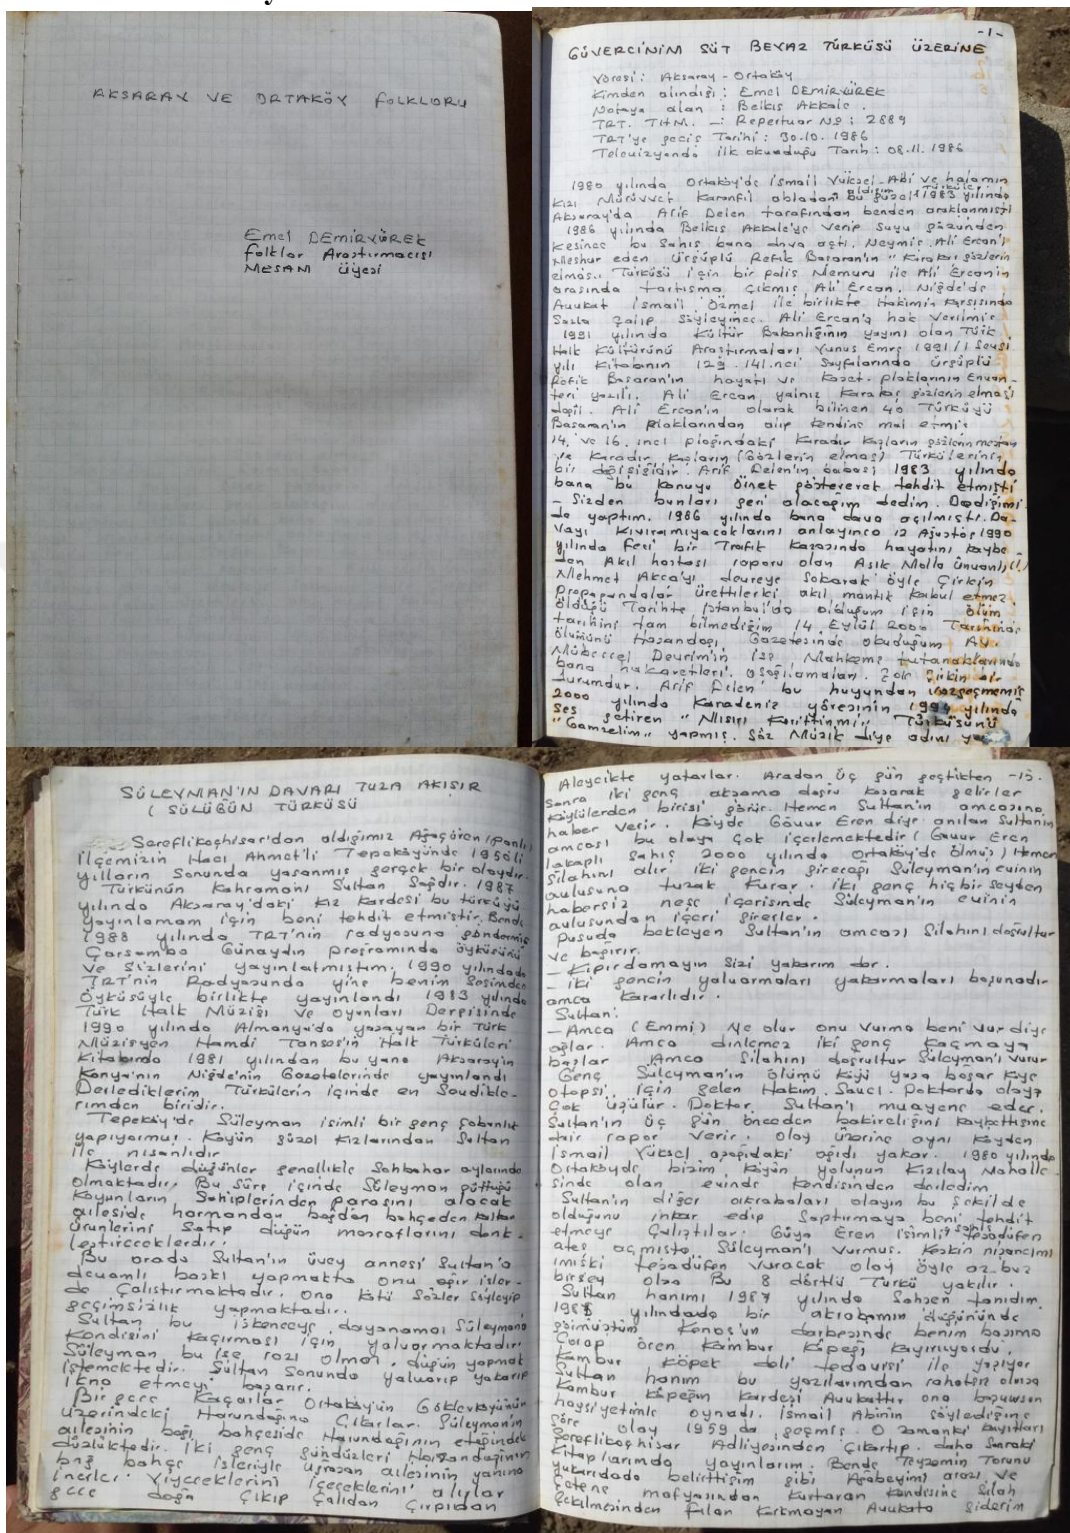 AKSARAY VE ORTAKÖY FOLKLORU
Emel DEMİRYÜREK
Folklor Araştırmacısı
MESAM Üyesi
-1-
GÜVERCİNİM SÜT BEYAZ TÜRKÜSÜ ÜZERİNE
Yöresi: Aksaray - Ortaköy
Kimden alındığı: Emel DEMİRYÜREK
Notaya alan: Belkıs Akkale.
TRT. THM. -: Repertuar No: 2889
TRT'ye geçiş Tarihi: 30.10.1986
Televizyonda ilk okunduğu Tarih: 08.11.1986
1980 yılında Ortaköy'de İsmail Yüksel Abi ve halamın
kızı Mürüvvet Karanfil abladan aldığım bu güzel Türkü 1983 yılında
Aksaray'da Arif Delen tarafından benden araklanmıştı
1986 yılında Belkıs Akkale'ye verip suyu gözünden
kesince bu Şahıs bana dava açtı. Neymiş Ali Ercan'ı
Meshur eden Ürgüplü Refik Başaran'ın "Karakaş gözlerin
elmas" Türküsü için bir polis Memuru ile Ali Ercan'ın
arasında tartışma çıkmış Ali Ercan. Niğde'de
Avukat İsmail Özmel ile birlikte Hakimin karşısında
Sazla çalıp söyleyince. Ali Ercan'a hak verilmiş
1991 yılında Kültür Bakanlığının yayını olan Türk
Halk Kültürünü Araştırmaları Yunus Emre 1991/1 Sevgi
yılı kitabının 129. 141.nci Sayfalarında Ürgüplü
Refik Başaran'ın hayatı ve kaset. plaklarının Envan-
teri yazılı. Ali Ercan yalnız Karakaş gözlerin elması
değil. Ali Ercan'ın olarak bilinen 40 Türküyü
Başaran'ın plaklarından alıp kendine mal etmiş
14. ve 16.ıncı plağındaki Karadır kaşların gözlerin mestan
ile Karadır kaşların (Gözlerin elmas) Türkülerinin
bir değişiğidir Arif Delen'in babası 1983 yılında
bana bu konuyu örnek göstererek tehdit etmişti
- Sizden bunları geri alacağım dedim. Dediğimi
de yaptım. 1986 yılında bana dava açılmıştı. Da-
vayı kıvıramıyacaklarını anlayınca 12 Ağustos 1990
yılında feci bir Trafik kazasında hayatını kaybe-
den Akıl hastası raporu olan Aşık Molla ünvanlı (!)
Mehmet Akça'yı devreye sokarak öyle Çirkin
Propagandalar ürettilerki akıl, mantık kabul etmez.
Öldüğü Tarihte İstanbul'da olduğum için ölüm
tarihini tam bilmediğim 14 Eylül 2000 Tarihinde
ölümünü Hasandağı Gazetesinde okuduğum Av.
Mübeccel Devrim'in ise Mahkeme tutanaklarında
bana hakaretleri. aşağılamaları. Çok çirkin bir
durumdur. Arif Delen bu huyundan vazgeçmemiş
2000 yılında Karadeniz yöresinin 1994 yılında
ses getiren "Mısırı Kuruttinmi" Türküsünü
"Gamzelim" yapmış. Söz Müzik diye adını ya
SÜLEYMAN'IN DAVARI TUZA AKIŞIR
(SÜLÜĞÜN TÜRKÜSÜ
Şereflikoçhisar'dan aldığımız Ağaçören (panlı)
İlçemizin Hacı Ahmet'li Tepeköyünde 1950li
yılların Sonunda yaşanmış gerçek bir olaydır.
Türkünün Kahramanı Sultan Sağdır. 1987
yılında Aksaray'daki kız kardeşi bu türküyü
yayınlamam için beni tehdit etmiştir. Bende
1988 yılında TRT'nin radyosuna göndermiş
Çarşamba Günaydın programında öykürünü
Ve Sözlerini yayınlatmıştım. 1990 yılındada
TRT'nin Radyosunda yine benim Sesimden
Öyküsüyle birlikte yayınlandı 1983 yılında
Türk Halk Müziği Ve Oyunları Dergisinde
1990 yılında Almanya'da yaşayan bir Türk
Müzisyen Hamdi Tanses'in Halk Türküleri
Kitabında 1981 yılından bu yana Aksaray'ın
Konya'nın Niğde'nin Gazetelerinde yayınlandı
Derlediklerim Türkülerin içinde en Sevdikle-
rimden biridir.
Tepeköy'de Süleyman isimli bir genç çobanlık
yapıyormuş. Köyün güzel kızlarından Sultan
ile nişanlıdır
Köylerde düğünler genellikle Sonbahar aylarında
olmaktadır. Bu süre içinde Süleyman güttüğü
Koyunların Sahiplerinden parasını alacak
ailesi de harmandan bağdan bahçeden kalkan
ürünlerini Satıp düğün masraflarını denk-
leştireceklerdir.
Bu arada Sultan'ın üvey annesi Sultan'a
devamlı baskı yapmakta onu ağır işler-
de Çalıştırmaktadır. Ona kötü Sözler söyleyip
geçimsizlik yapmaktadır.
Sultan bu işkenceye dayanamaz Süleymana
Kendisini kaçırması için yalvarmaktadır.
Süleyman bu işe razı olmaz. düğün yapmak
istemektedir. Sultan Sonunda yalvarıp yakarıp
ikna etmeyi başarır.
Bir gece Kaçarlar Ortaköyün Gökkevköyünün
Üzerindeki Harundağına Çıkarlar. Süleyman'ın
ailesinin bağı bahçeside Harundağının eteğindek
düzlüktedir. İki genç gündüzleri Harundağının
bağ bahçe işleriyle uğraşan ailesinin yanına
inerler. Yiyeceklerini içeceklerini alırlar
gece dağa çıkıp Çalıdan Çırpıdan
-15-
Alaycikte yatarlar. Aradan üç gün geçtikten
sonra iki genç akşama doğru koşarak gelirler
köylülerden birisi görür. Hemen Sultan'ın amcasına
haber verir. Köyde Gavur Eren diye anılan Sultanın
amcası bu olaya çok içerlemektedir (Gavur Eren
lakaplı Şahıs 2000 yılında Ortaköy'de ölmüş) Hemen
Silahını alır iki gencin gireceği Süleyman'ın evinin
avlusuna tuzak kurar. iki genç hiçbir şeyden
habersiz neşe içerisinde Süleyman'ın evinin
avlusundan içeri girerler.
Pusuda bekleyen Sultan'ın amcası Silahını doğrultur
ve bağırır.
- Kıpırdamayın sizi yakarım der.
- iki gencin yalvarmaları yakarmaları boşunadır
amca Kararlıdır.
Sultan:
- Amca (Emmi) Ne olur onu vurma beni vur diye
ağlar. Amca dinlemez iki genç kaçmaya
başlar Amca Silahını doğrultur Süleyman'ı vurur
Genç Süleyman'ın ölümü köyü yasa boğar köye
otopsi için gelen Hakim. Savcı. Doktorda olaya
çok üzülür. Doktor. Sultan'ı muayene eder.
Sultan'ın üç gün önceden bakireliğini kaybettiğine
dair rapor verir. olay üzerine aynı köyden
İsmail Yüksel aşağıdaki ağıdı yakar. 1980 yılında
Ortaköyde bizim köyün yolunun Kızılay Mahalle
sinde olan evinde kendisinden derledim
Sultan'ın diğer akrabaları olayın bu şekilde
olduğunu inkar edip saptırmaya beni tehdit
etmeye Çalıştılar. Güya Eren isimli şahıs tesadüfen
ateş açmışta Süleyman'ı vurmuş. Keskin nişancımı
imişki tesadüfen vuracak olay öyle az.buz
birşey olsa Bu 8 dörtlü Türkü yakılır.
Sultan hanımı 1987 yılında Şahsen tanıdım.
yılındada bir akrabamın düğününde
görmüştüm Kenos'un darbesinde benim başıma
Çorap ören Kambur köpeği kayırıyordu.
Kambur köpek deli tedavisi ile yaşıyor
Sultan hanım bu yazılarımdan rahatsız olursa
Kambur köpeğin kardeşi Avukattır ona başvursun
haysiyetimle oynadı. İsmail Abinin söylediğine
göre olay 1959 da geçmiş. O zamanki kayıtları
Şereflikoçhisar Adliyesinden çıkartıp. daha Sonraki
kitaplarımda yayınlarım. Bende Teyzemin Torunu
yukarıdada belirttiğim gibi Ağabeyimi arazi ve
Çetene mafyasından kurtaran kendisine Silah
Çekilmesinden filan korkmayan Avukata giderim